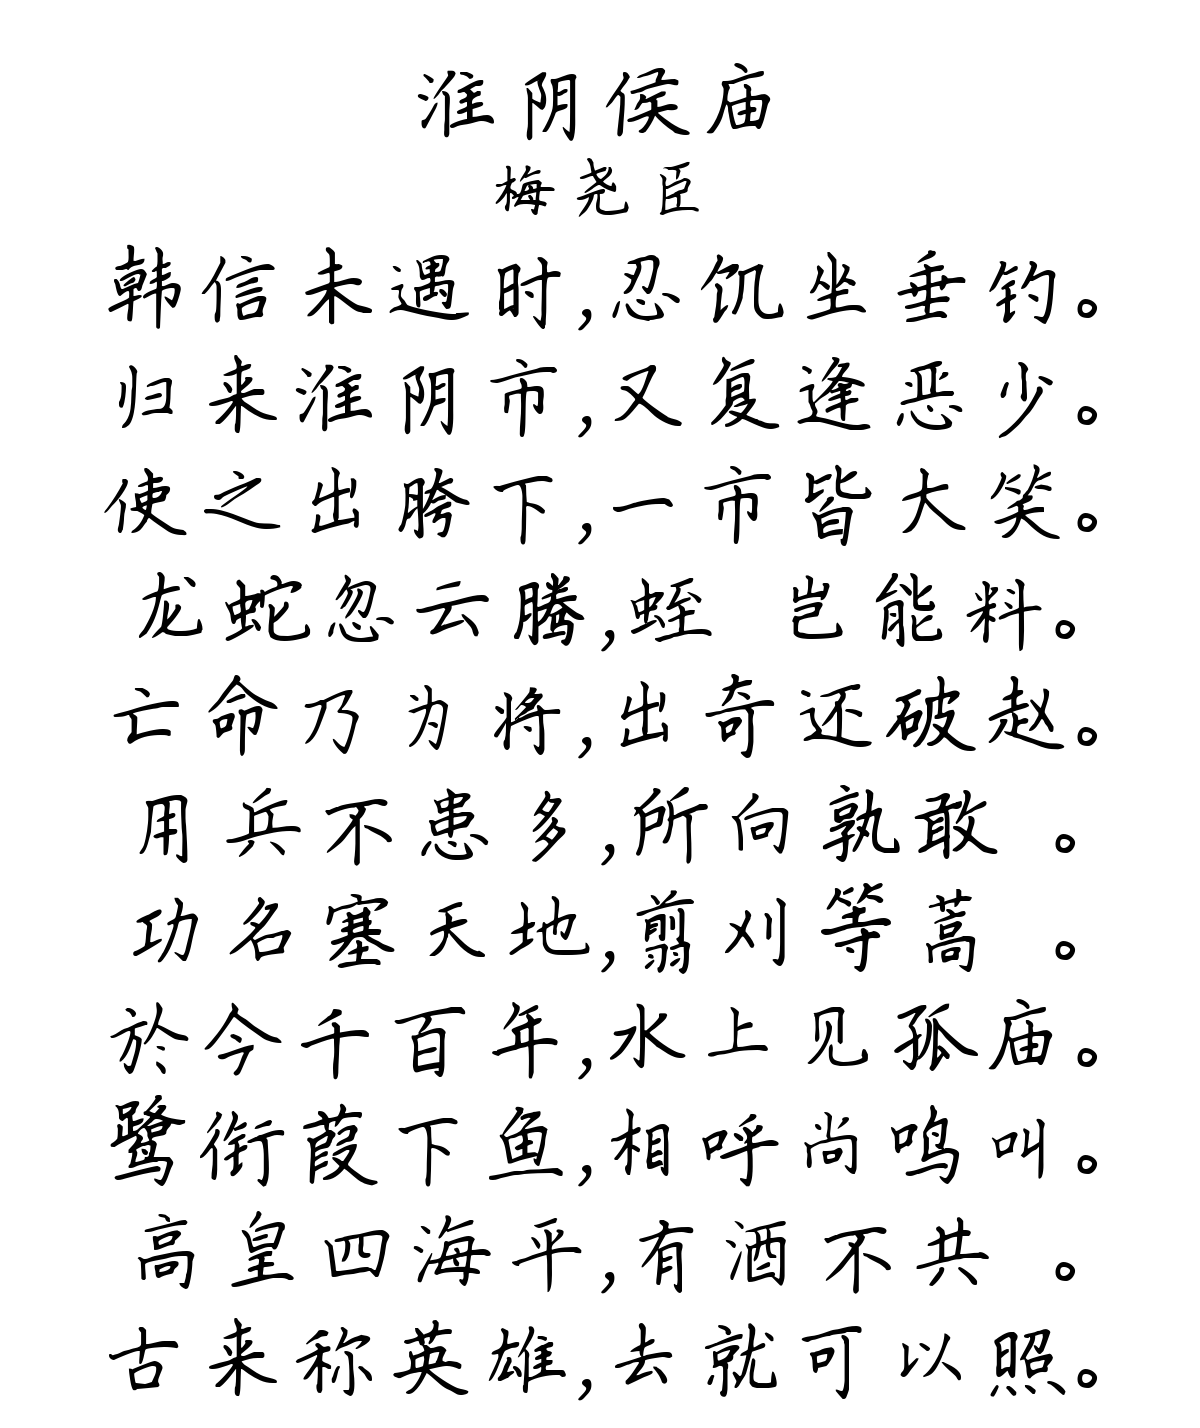 淮阴侯庙
梅尧臣
韩信未遇时,忍饥坐垂钓。
归来淮阴市,又复逢恶少。
使之出胯下,一市皆大笑。
龙蛇忽云腾,蛭 岂能料。
亡命乃为将,出奇还破赵。
用兵不患多,所向孰敢 。
功名塞天地,翦刈等蒿 。
於今千百年,水上见孤庙。
鹭衔葭下鱼,相呼尚鸣叫。
高皇四海平,有酒不共 。
古来称英雄,去就可以照。